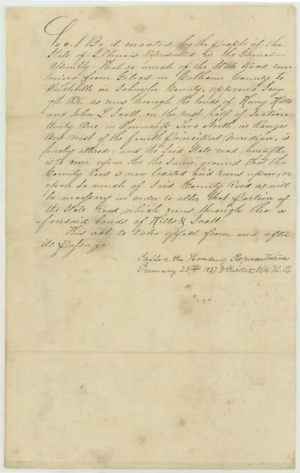 Sec. 1 Be it enacted by the people of the
State of Illinois represented in the General
Assembly That so much of the State Road run
ning from Gilead in Calhoun County to
Rushville in Schuyler County, approved
as runs through the lands of Henry Hills
and John L Scott, on the west half of Section
thirty One, in Township Two North in Range
West of the fourth principal meridian, is
hereby altered, and the said State road hereafter
is to run upon the the same ground that the
County Road is now located and runs upon, or
upon so much of said County Road as will
be necessary in order to alter that portion of
the State Road which runs through the a
foresaid lands of Hills & Scott.
This act to take effect from and after
its passage
Passed the House of Representatives
January 25th 1837